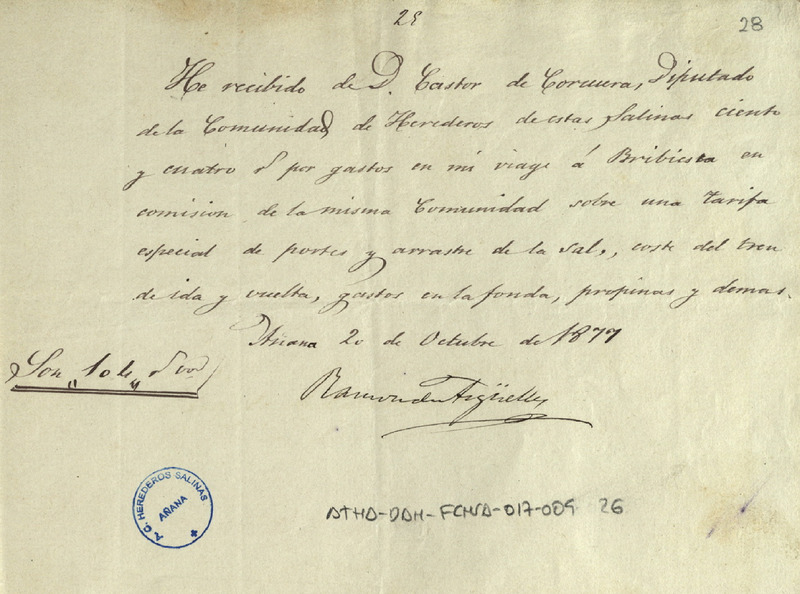 28
28
He recibido de D. Castor de Corcuera, Diputado
de la Comunidad de Herederos de estas Salinas ciento
y cuatro r⁠s por gastos en mi viage á Bribiesca en
comision de la misma Comunidad sobre una tarifa
especial de portes y arrastre de la sal, coste del tren
de ida y vuelta, gastos en la fonda, propinas y demas.
Añana 20 de Octubre de 1877
Son "104" r⁠s
Ramon de Argüelles
A. G. HEREDEROS SALINAS
AÑANA
ATHA-DAH-FCHSA-017-009 26